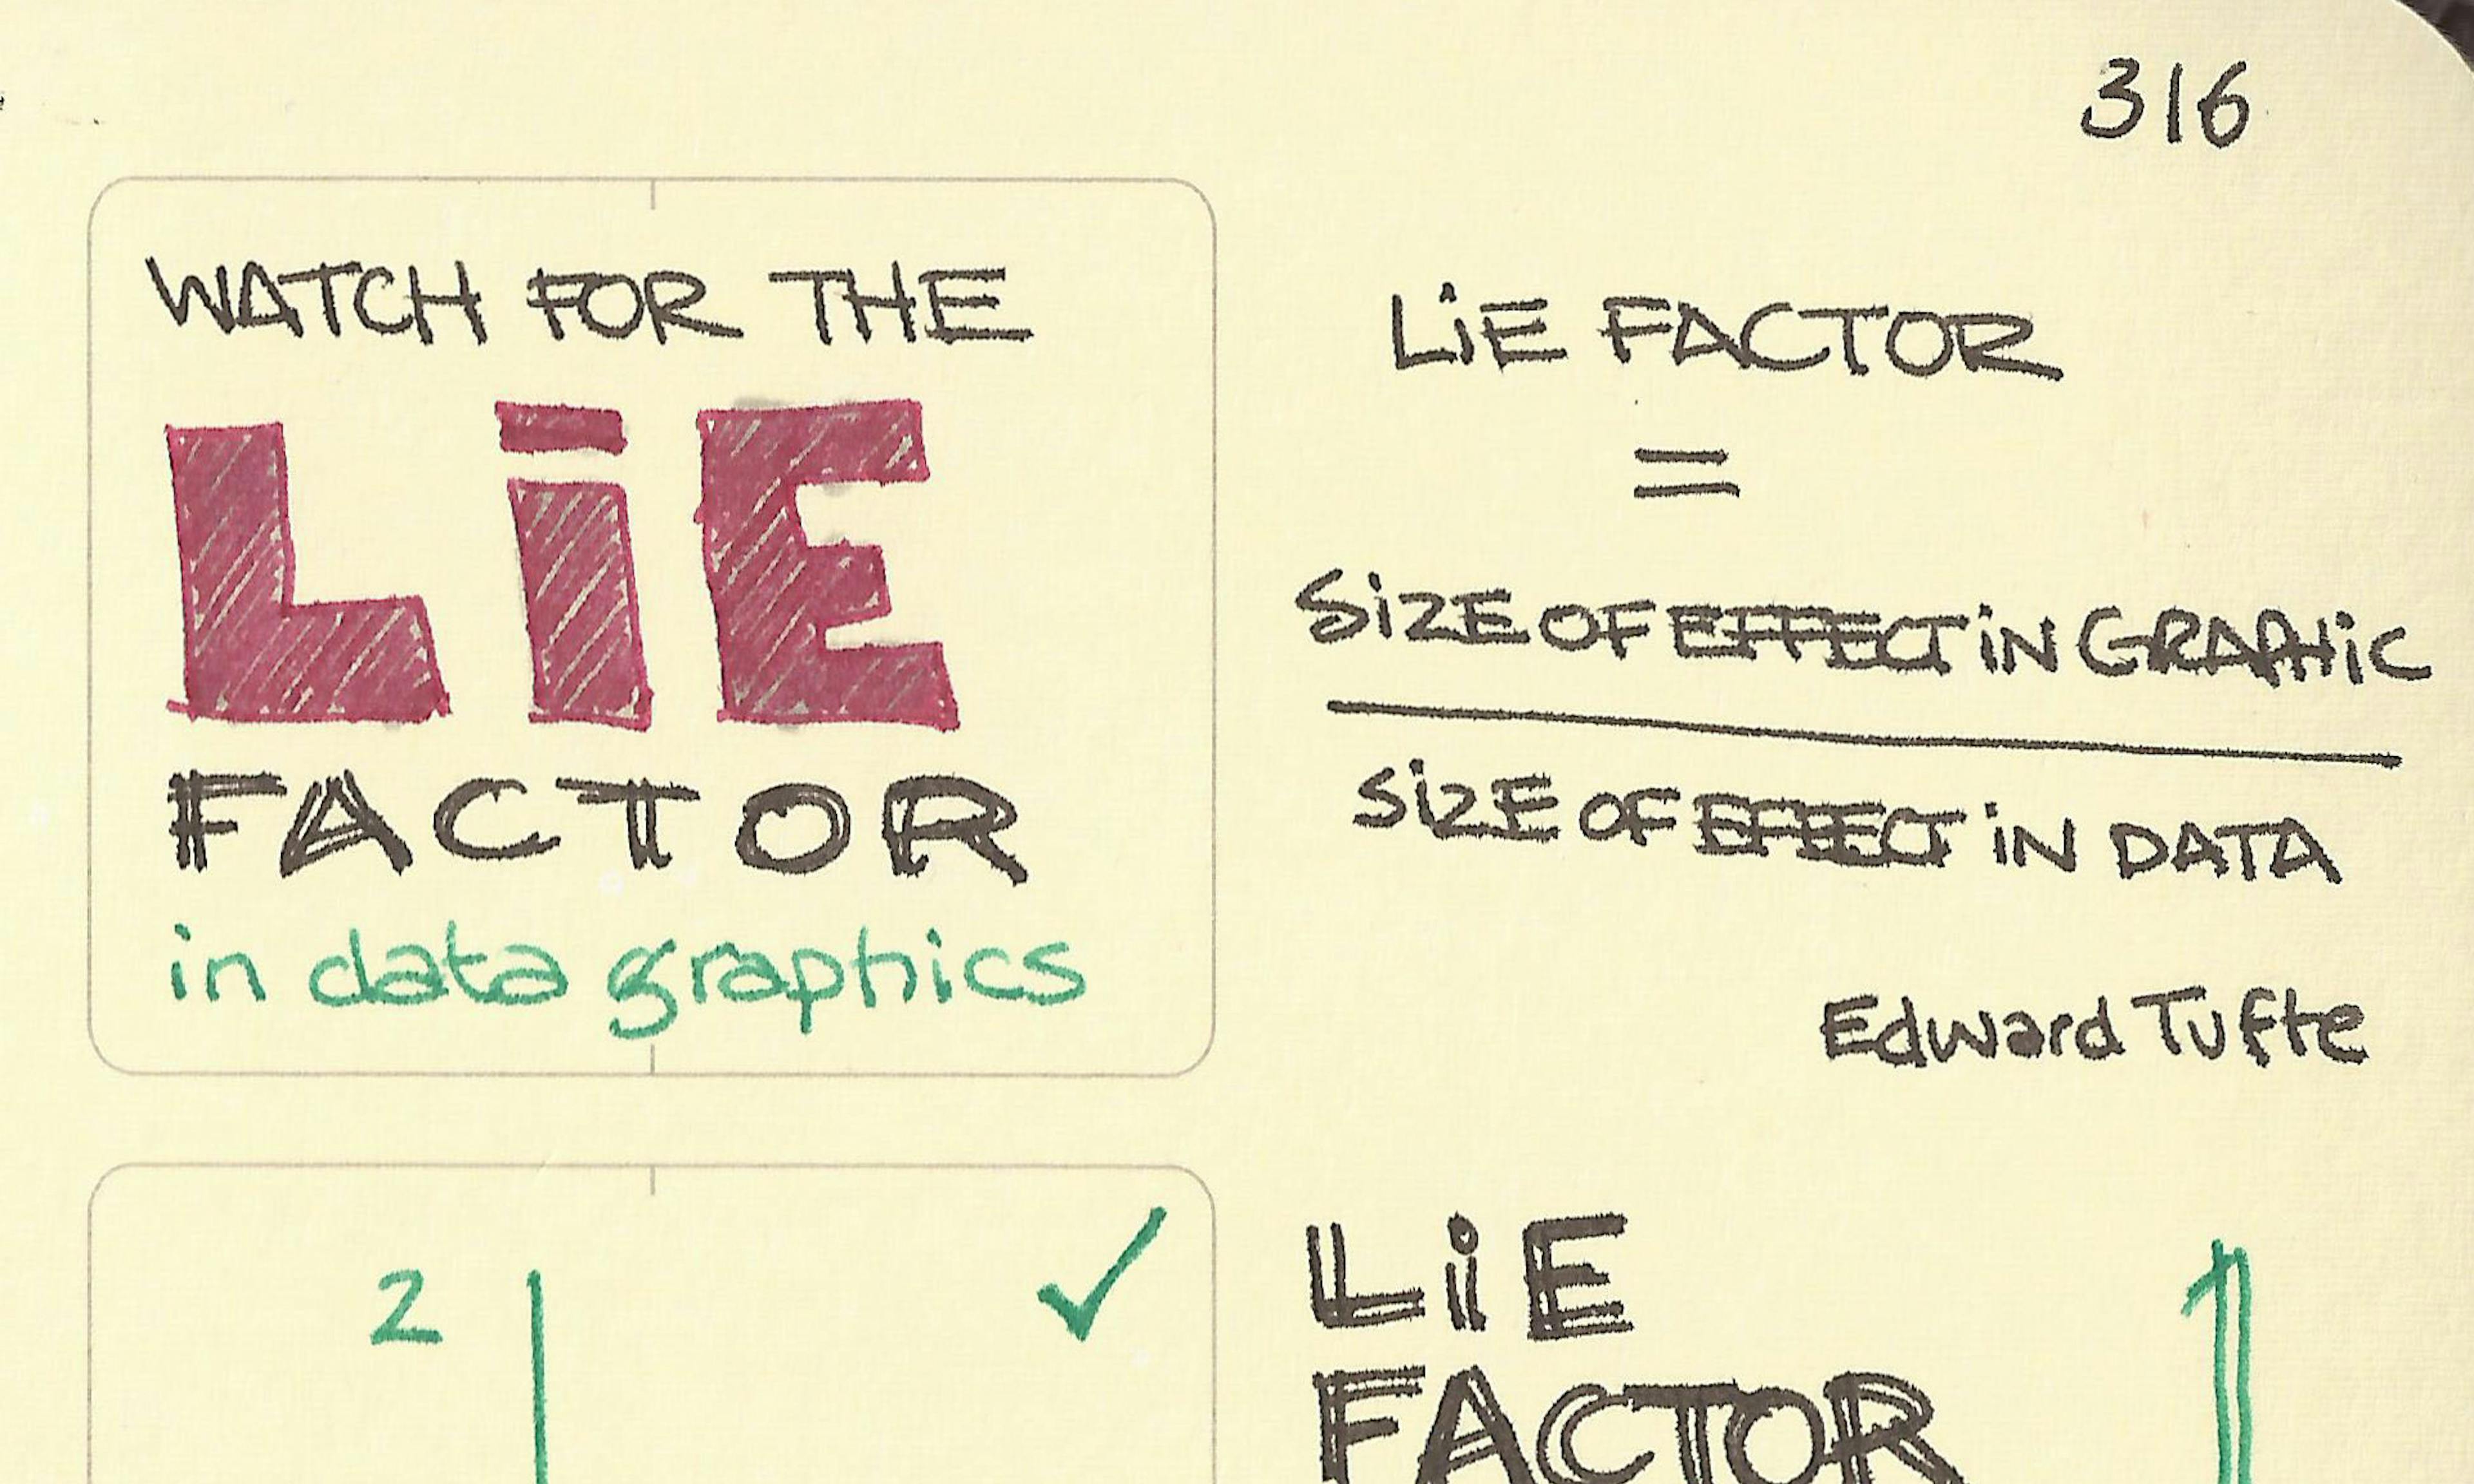 316
WATCH FOR THE
LiE
FACTOR
in data graphics
LiE FACTOR
=
SiZE OF EFFECT iN GRAPHiC
SiZE OF EFFECT iN DATA
Edward Tufte
2
LiE
FACTOR